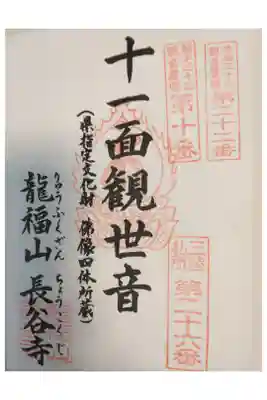 第十番
第二十六番
十一面観世音
(県指定文化財 佛像四体所蔵)
りゅうふくざん ちょうこくじ
龍福山 長谷寺